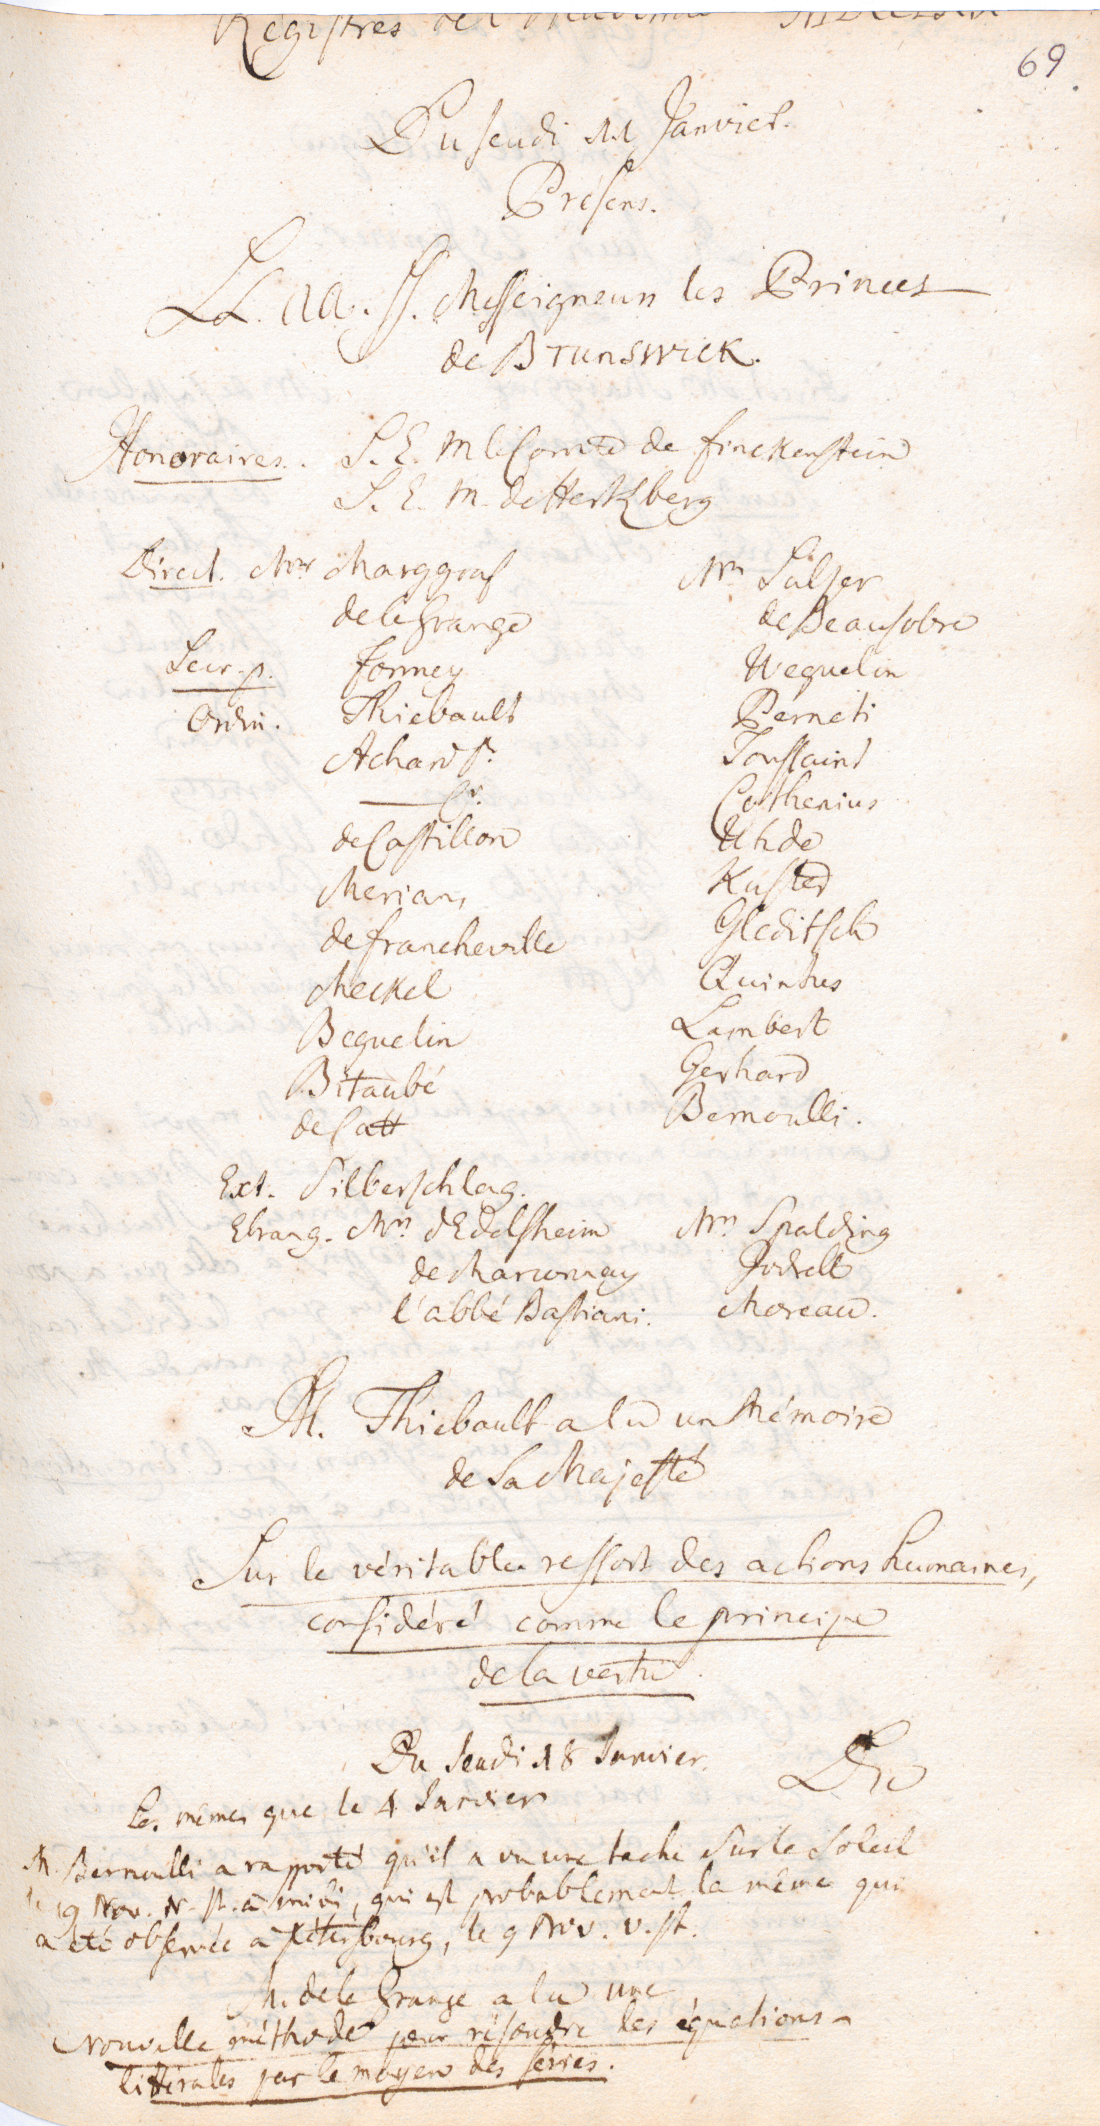 Registres de l'Academie
69.
Du Jeudi 11 Janvier.
Présens.
LL. AA. SS. Messeigneurs les Princes
de Brunswick.
Honoraires. S. E. M le Comte de Finckenstein
S. E. M. de Hertzberg
Direct. Mrs Marggraf Mrs Sulzer
de la Grange de Beausobre
Secr. p. Formey Weguelin
Ordin. Thiebault Perneti
Achard Sr. Toussaint
—— Jr. Cothenius
de Castillon Uhde
Merian, Kuster
de Francheville Gleditsch
Meckel Quintus
Beguelin Lambert
Bitaubé Gerhard
de Catt Bernoulli.
Ext. Silberschlag.
Etrang. Mrs. d'Edelsheim Mrs Spalding
de Marwnay Jodrell
l'abbé Bastiani. Moreau.
M. Thiebault a lu un Mémoire
de Sa Majesté
Sur le véritable ressort des actions humaines,
considéré comme le principe
de la vertu.
Du Jeudi 18 Janvier.
Les mêmes que le 4 Janvier
M. Bernoulli a rapporté qu'il a vu une tache Sur le Soleil
le 19 Nov. N. st. à midi, qui est probablement la même qui
a été observée à Pétersbourg, le 9 Nov. v. st.
M. de la Grange a lu une
Nouvelle méthode pour résoudre les équations
littérales par le moyen des séries.